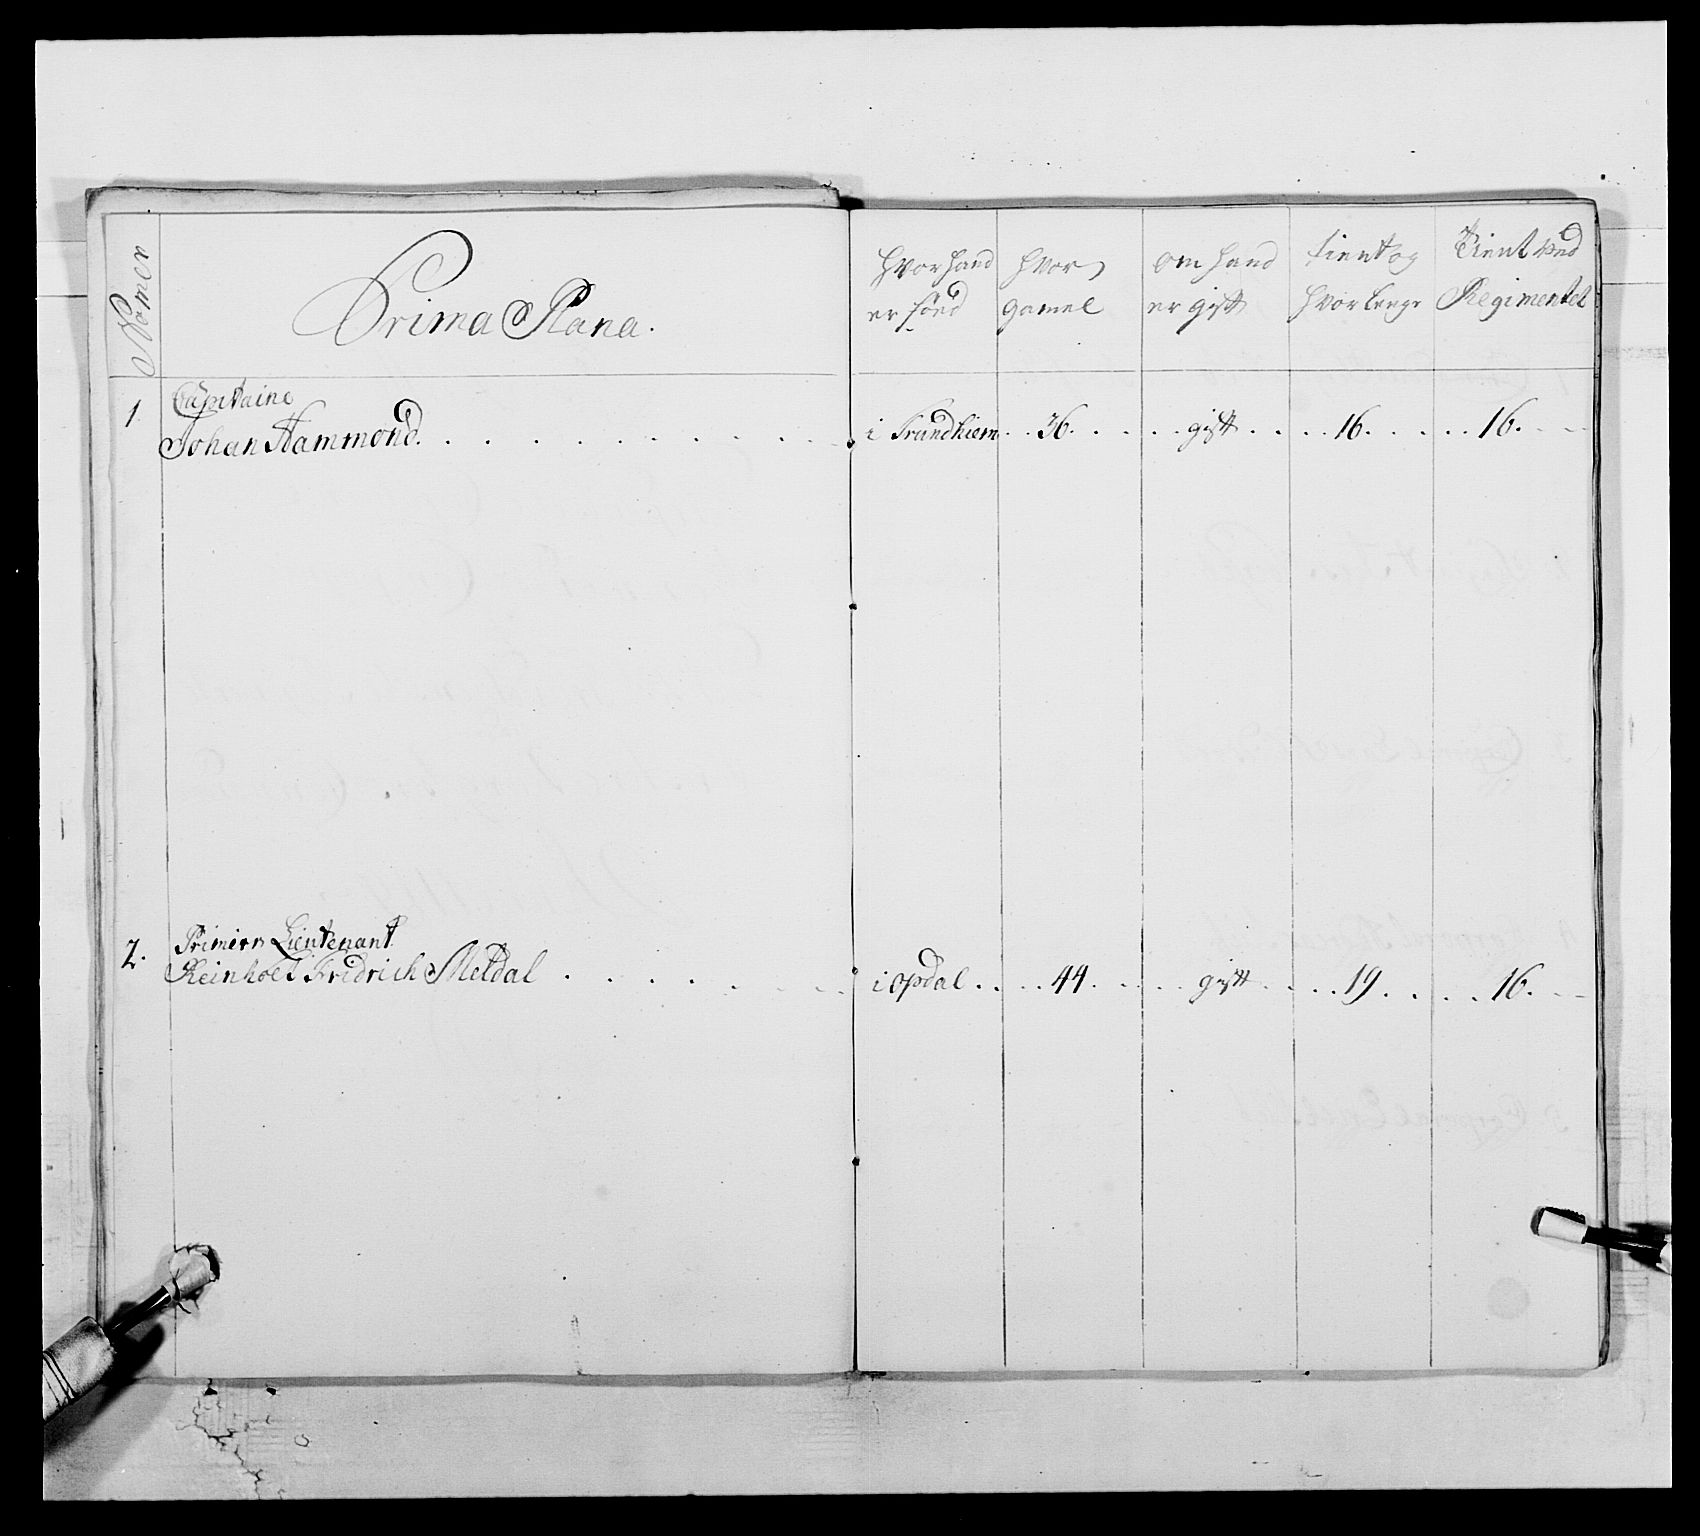 Nomer
Prima Plana.
hvor hand
er föed
hvor
gamel
om hand
er gift
tient og
hvor lenge
Tient ved
Regimentet
1 Capitaine
Johan Hammond. i Trundhiem 36. gift 16. 16.
2. Primier Lieutenant
Reinholt Fridrich Meldal i Opdal 44. gift 19. 16.